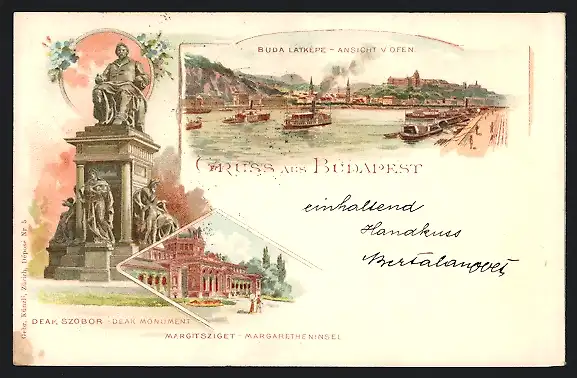 BUDA LÁTKÉPE - ANSICHT V OFEN.
GRUSS AUS BUDAPEST
einhaltend
Handkuss
DEAK SZOBOR - DEAK MONUMENT
MARGITSZIGET - MARGARETHENINSEL
Gebr. Künzli, Zürich, Déposé Nr. 5